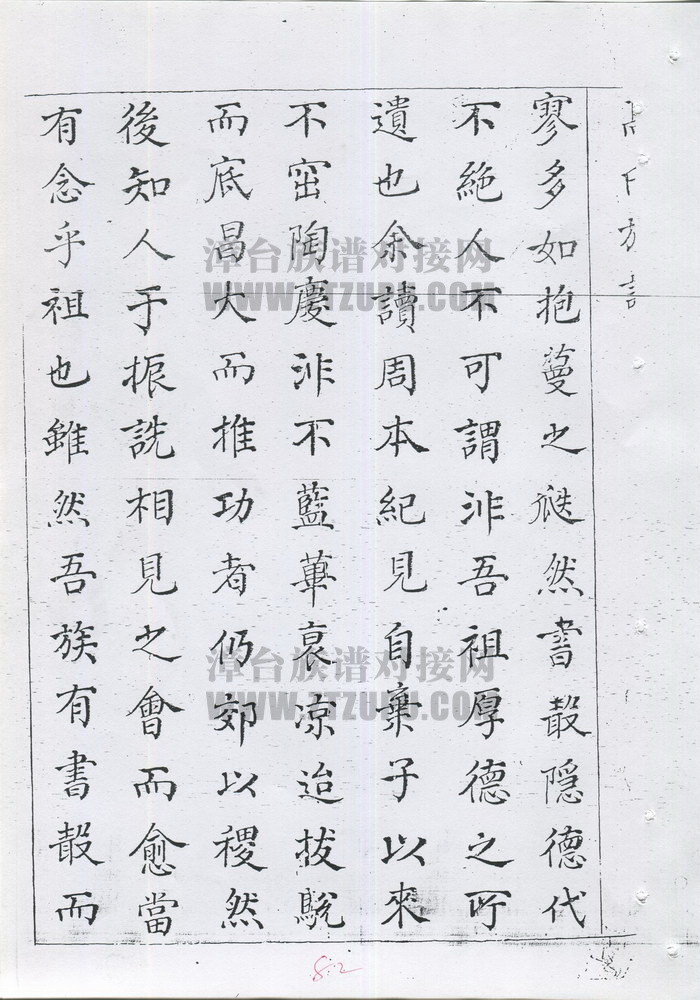 寥多如抱蔓之然書散隱德代
不絕人不可謂非吾祖厚德之所
遺也余讀周本紀見自棄子以來
不窋陶慶非不藍蓽哀凉迨拔駾
而底昌大而推功者仍郊以稷然
後知人于振詵相見之會而愈當
有念乎祖也雖然吾族有書散而
漳台族谱对接网
漳台族谱对接网
82